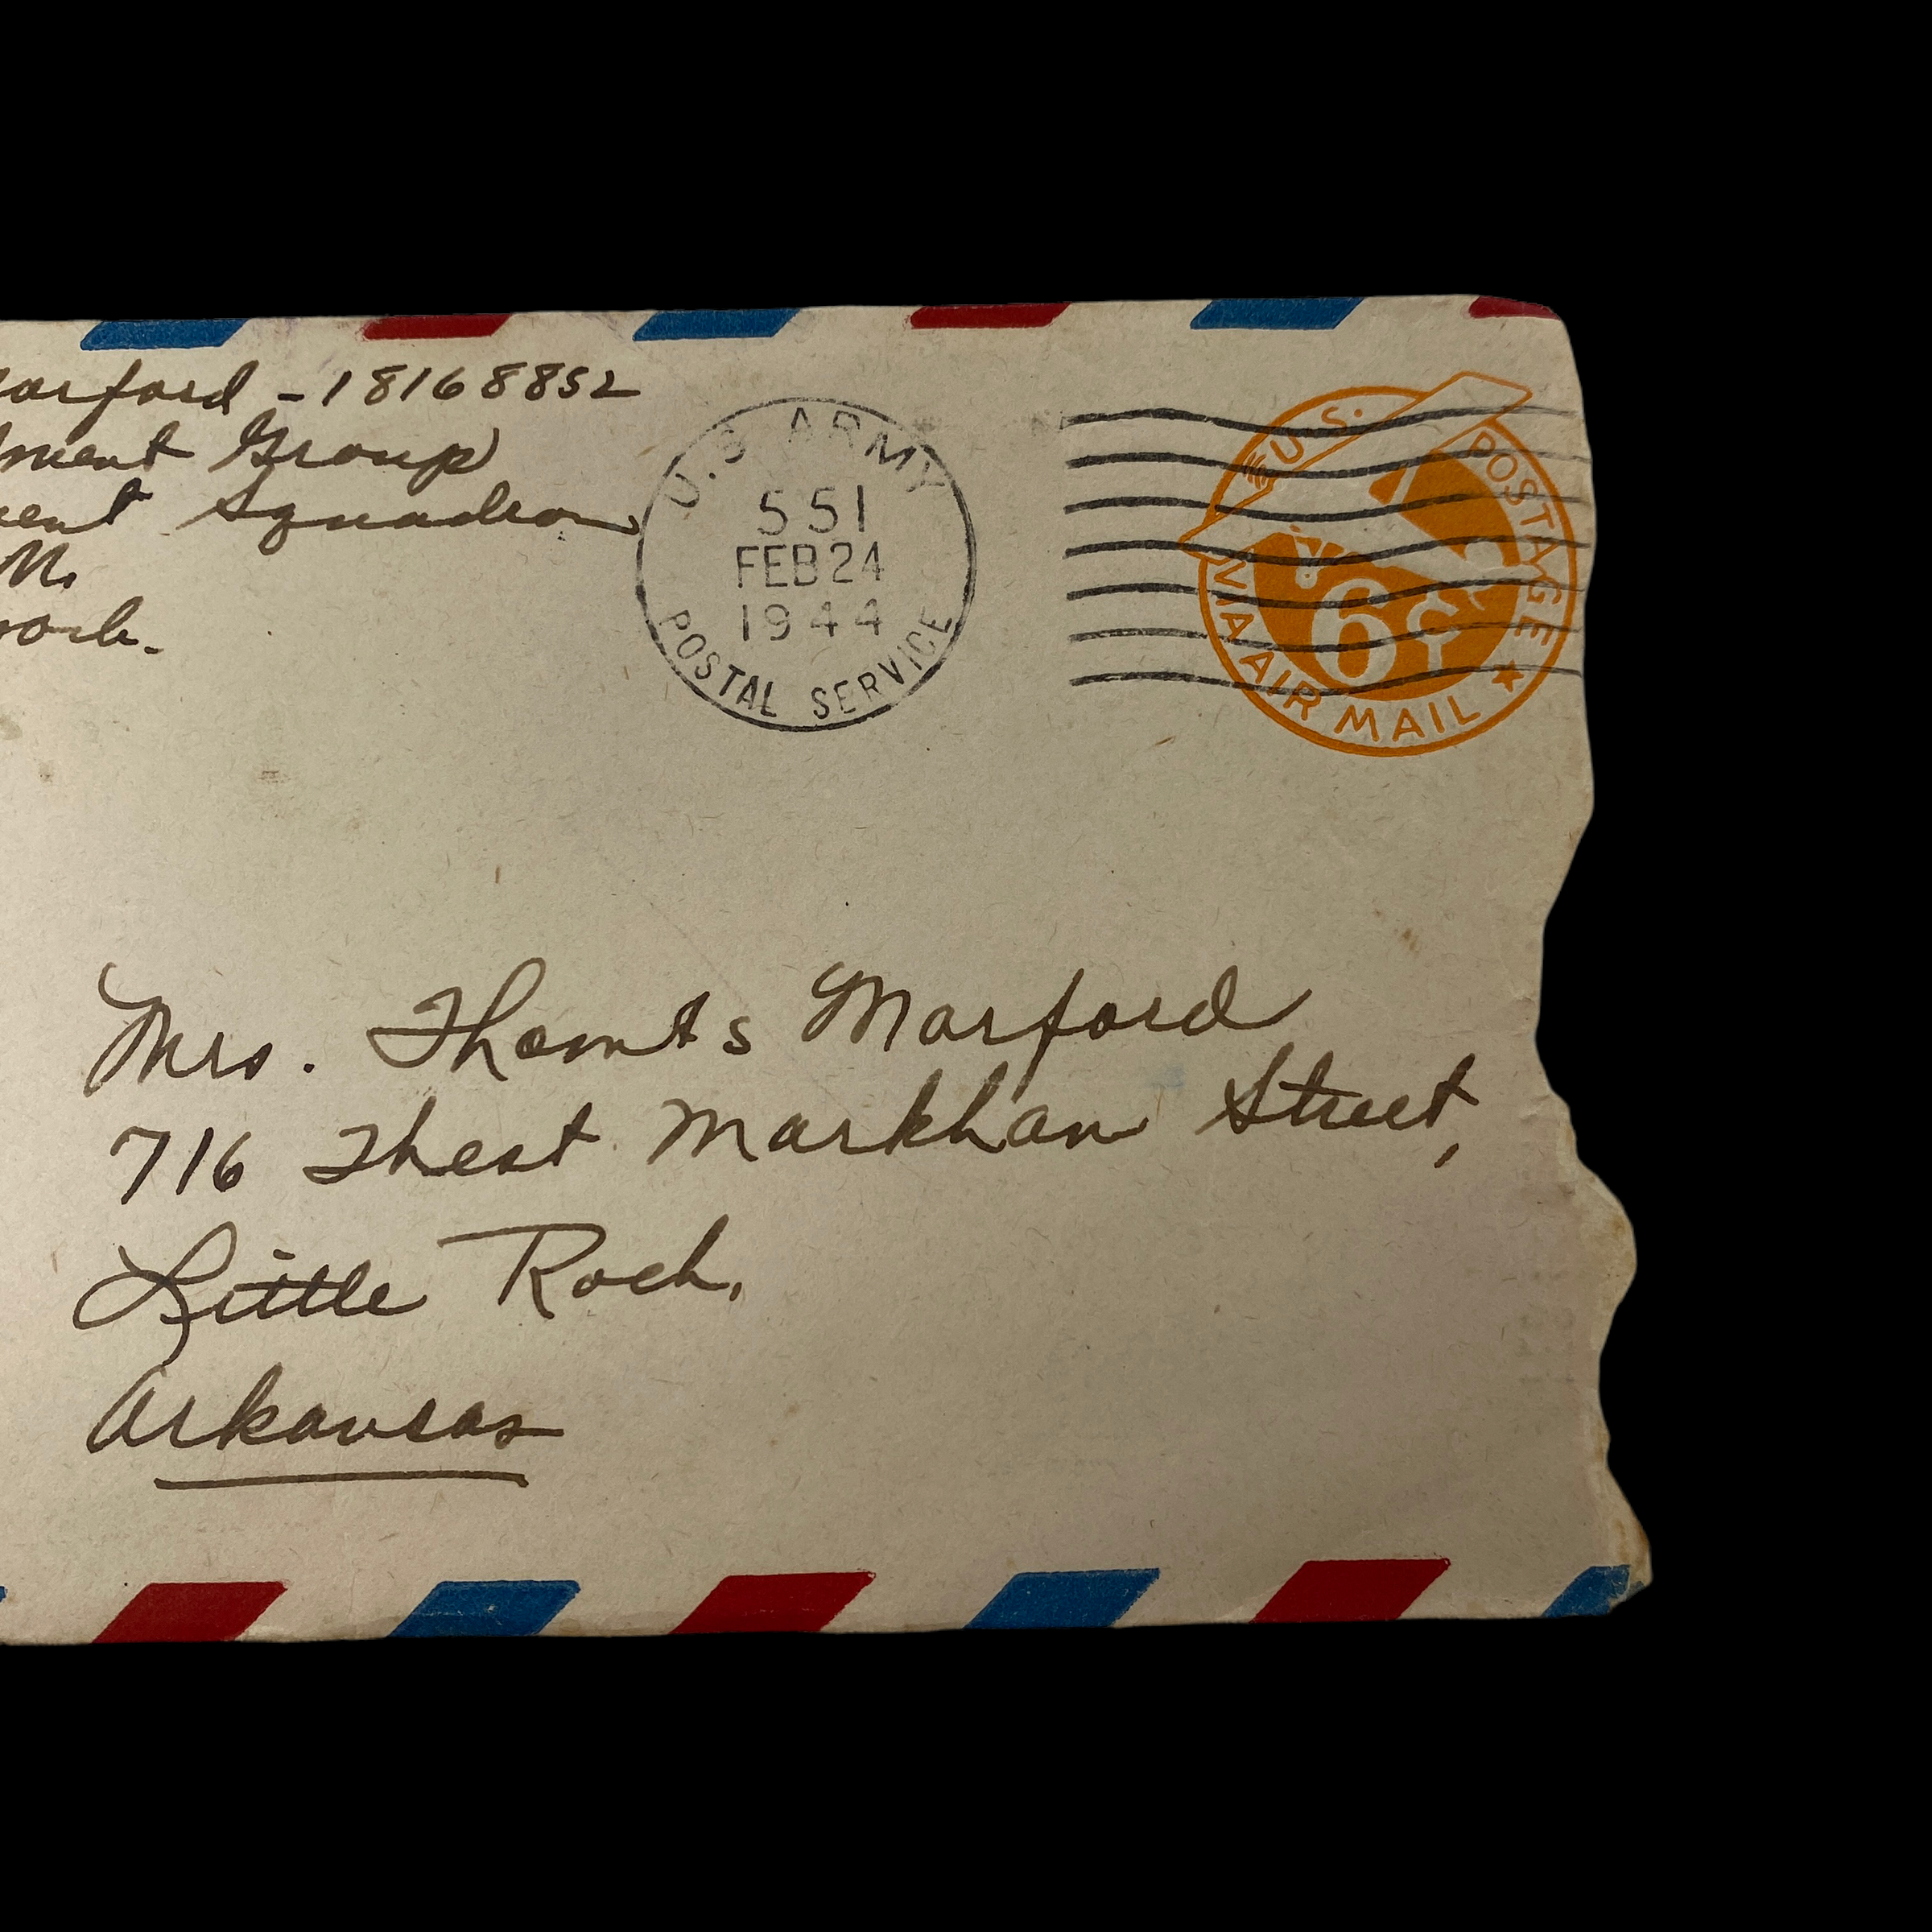 arford - 18168852
ment Group
ent Squadron
M.
York.
U.S. ARMY
551
FEB 24
1944
POSTAL SERVICE
U.S. POSTAGE
6¢
VIA AIR MAIL
Mrs. Thomas Marford
716 West Markham Street,
Little Rock,
Arkansas